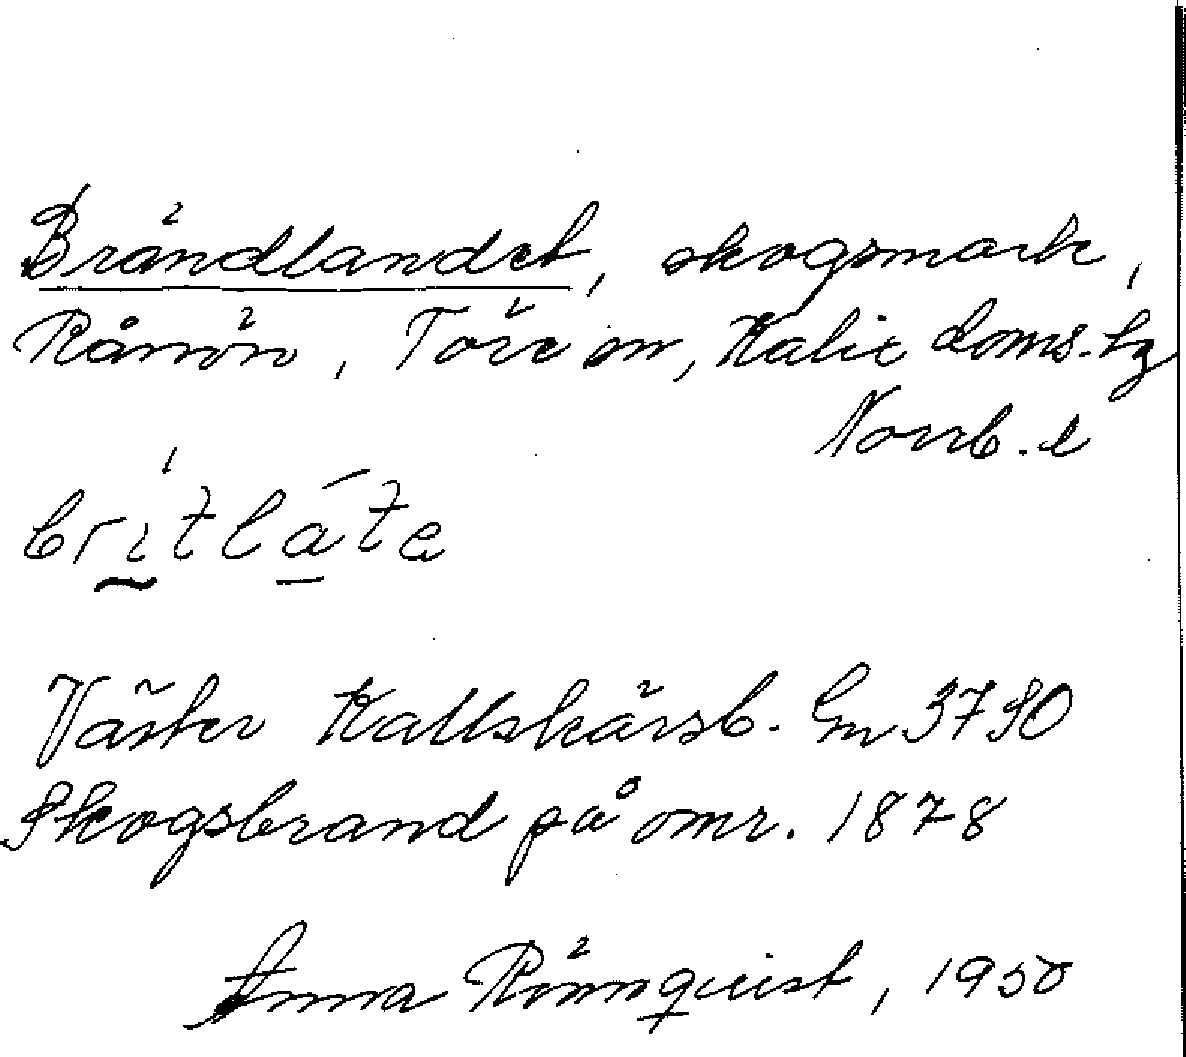 Brändlandet, skogsmark,
Rånön, Töre sn, Kalix doms. tg
Norrb. l
britlátẹ
Väster Kallskärsb. Gm 3790
Skogsbrand på omr. 1878
Anna Rönnquist, 1950